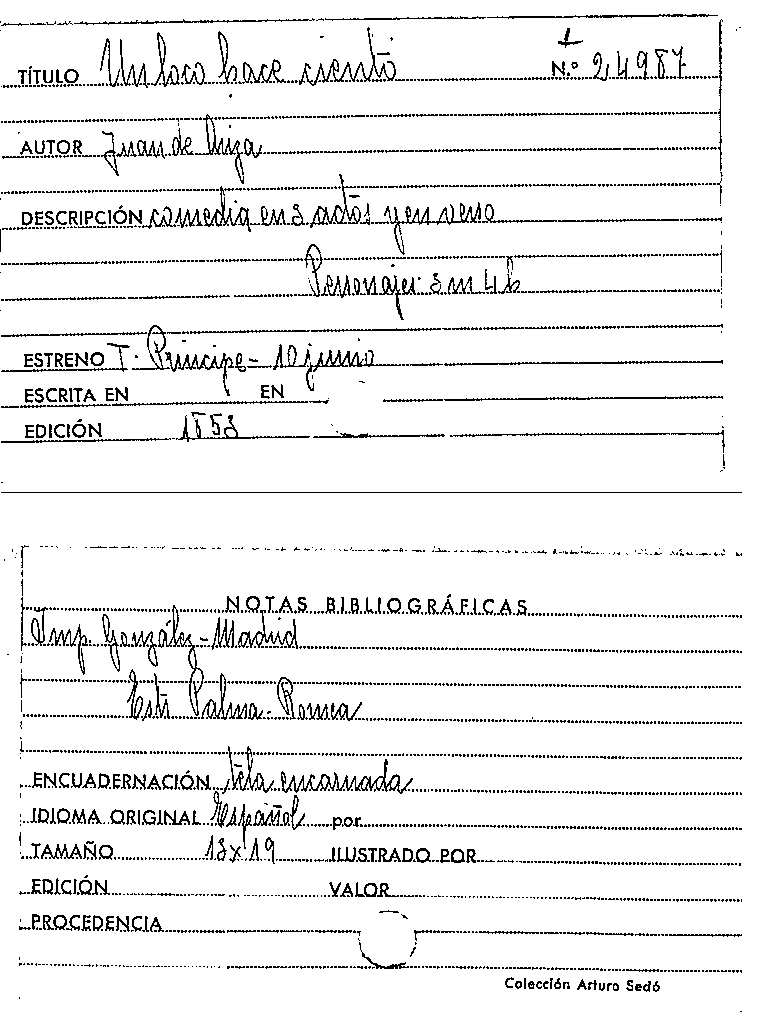 TÍTULO Un loco hace ciento N.º 24987
AUTOR Juan de Ariza
DESCRIPCIÓN comedia en 3 actos y en verso
Personajes 3 m 4 h
ESTRENO T. Príncipe - 10 junio
ESCRITA EN EN
EDICIÓN 1853
NOTAS BIBLIOGRÁFICAS
Imp. González - Madrid
Palma - Romea
ENCUADERNACIÓN tela encarnada
IDIOMA ORIGINAL Español por
TAMAÑO 13 x 19 ILUSTRADO POR
EDICIÓN VALOR
PROCEDENCIA
Colección Arturo Sedó